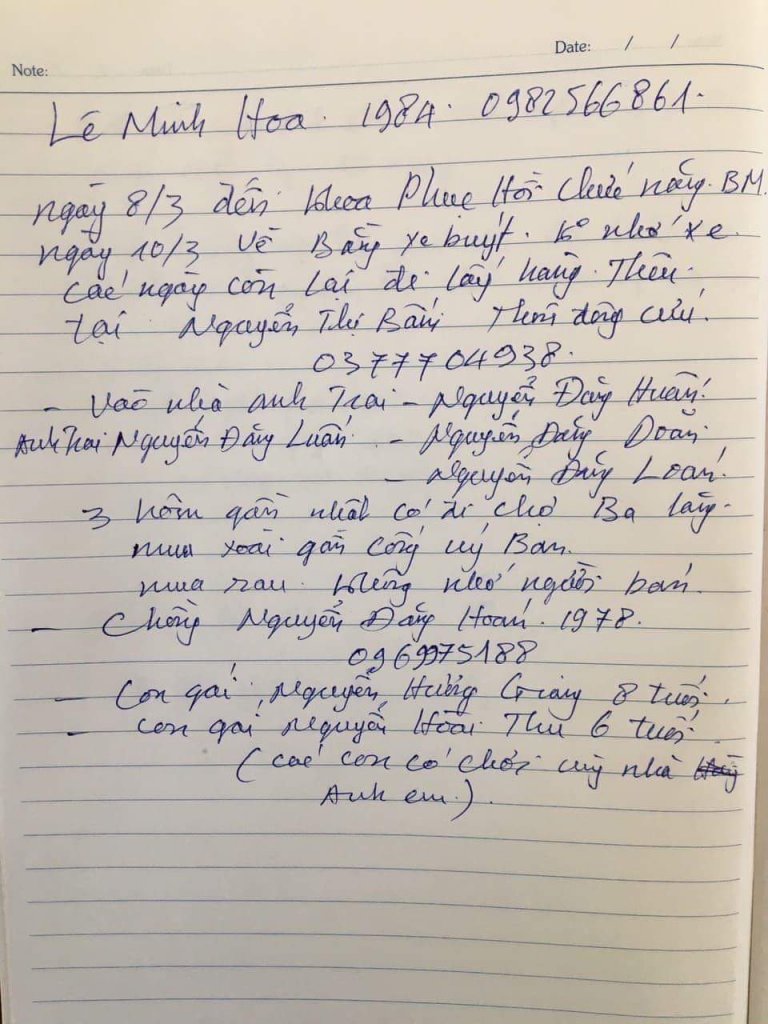 Date: / /
Note:
Lê Minh Hoa. 1984. 0982566861.
ngày 8/3 đến khoa Phục Hồi chức năng. BM.
ngày 10/3 về Bằng xe buýt. Ko nhớ xe.
các ngày còn lại đi lấy hàng. Thêu.
tại Nguyễn Thị Bấm Thôn đông cứu.
0377704938.
- Vào nhà anh Trai - Nguyễn Đăng Huấn.
Anh Trai Nguyễn Đăng Luấn. - Nguyễn Đăng Doãn
- Nguyễn Đăng Loan.
3 hôm gần nhất có đi chợ Ba lăng.
mua xoài gần cổng uỷ Ban.
mua rau. không nhớ người bán.
- Chồng Nguyễn Đăng Hoan. 1978.
0969975188
- Con gái Nguyễn Hương Giang 8 tuổi.
- Con gái Nguyễn Hoài Thu 6 tuổi.
(các con có chơi cùng nhà
Anh em.).